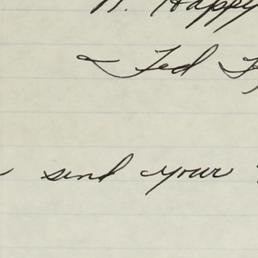 N. Happy
Ted
send your